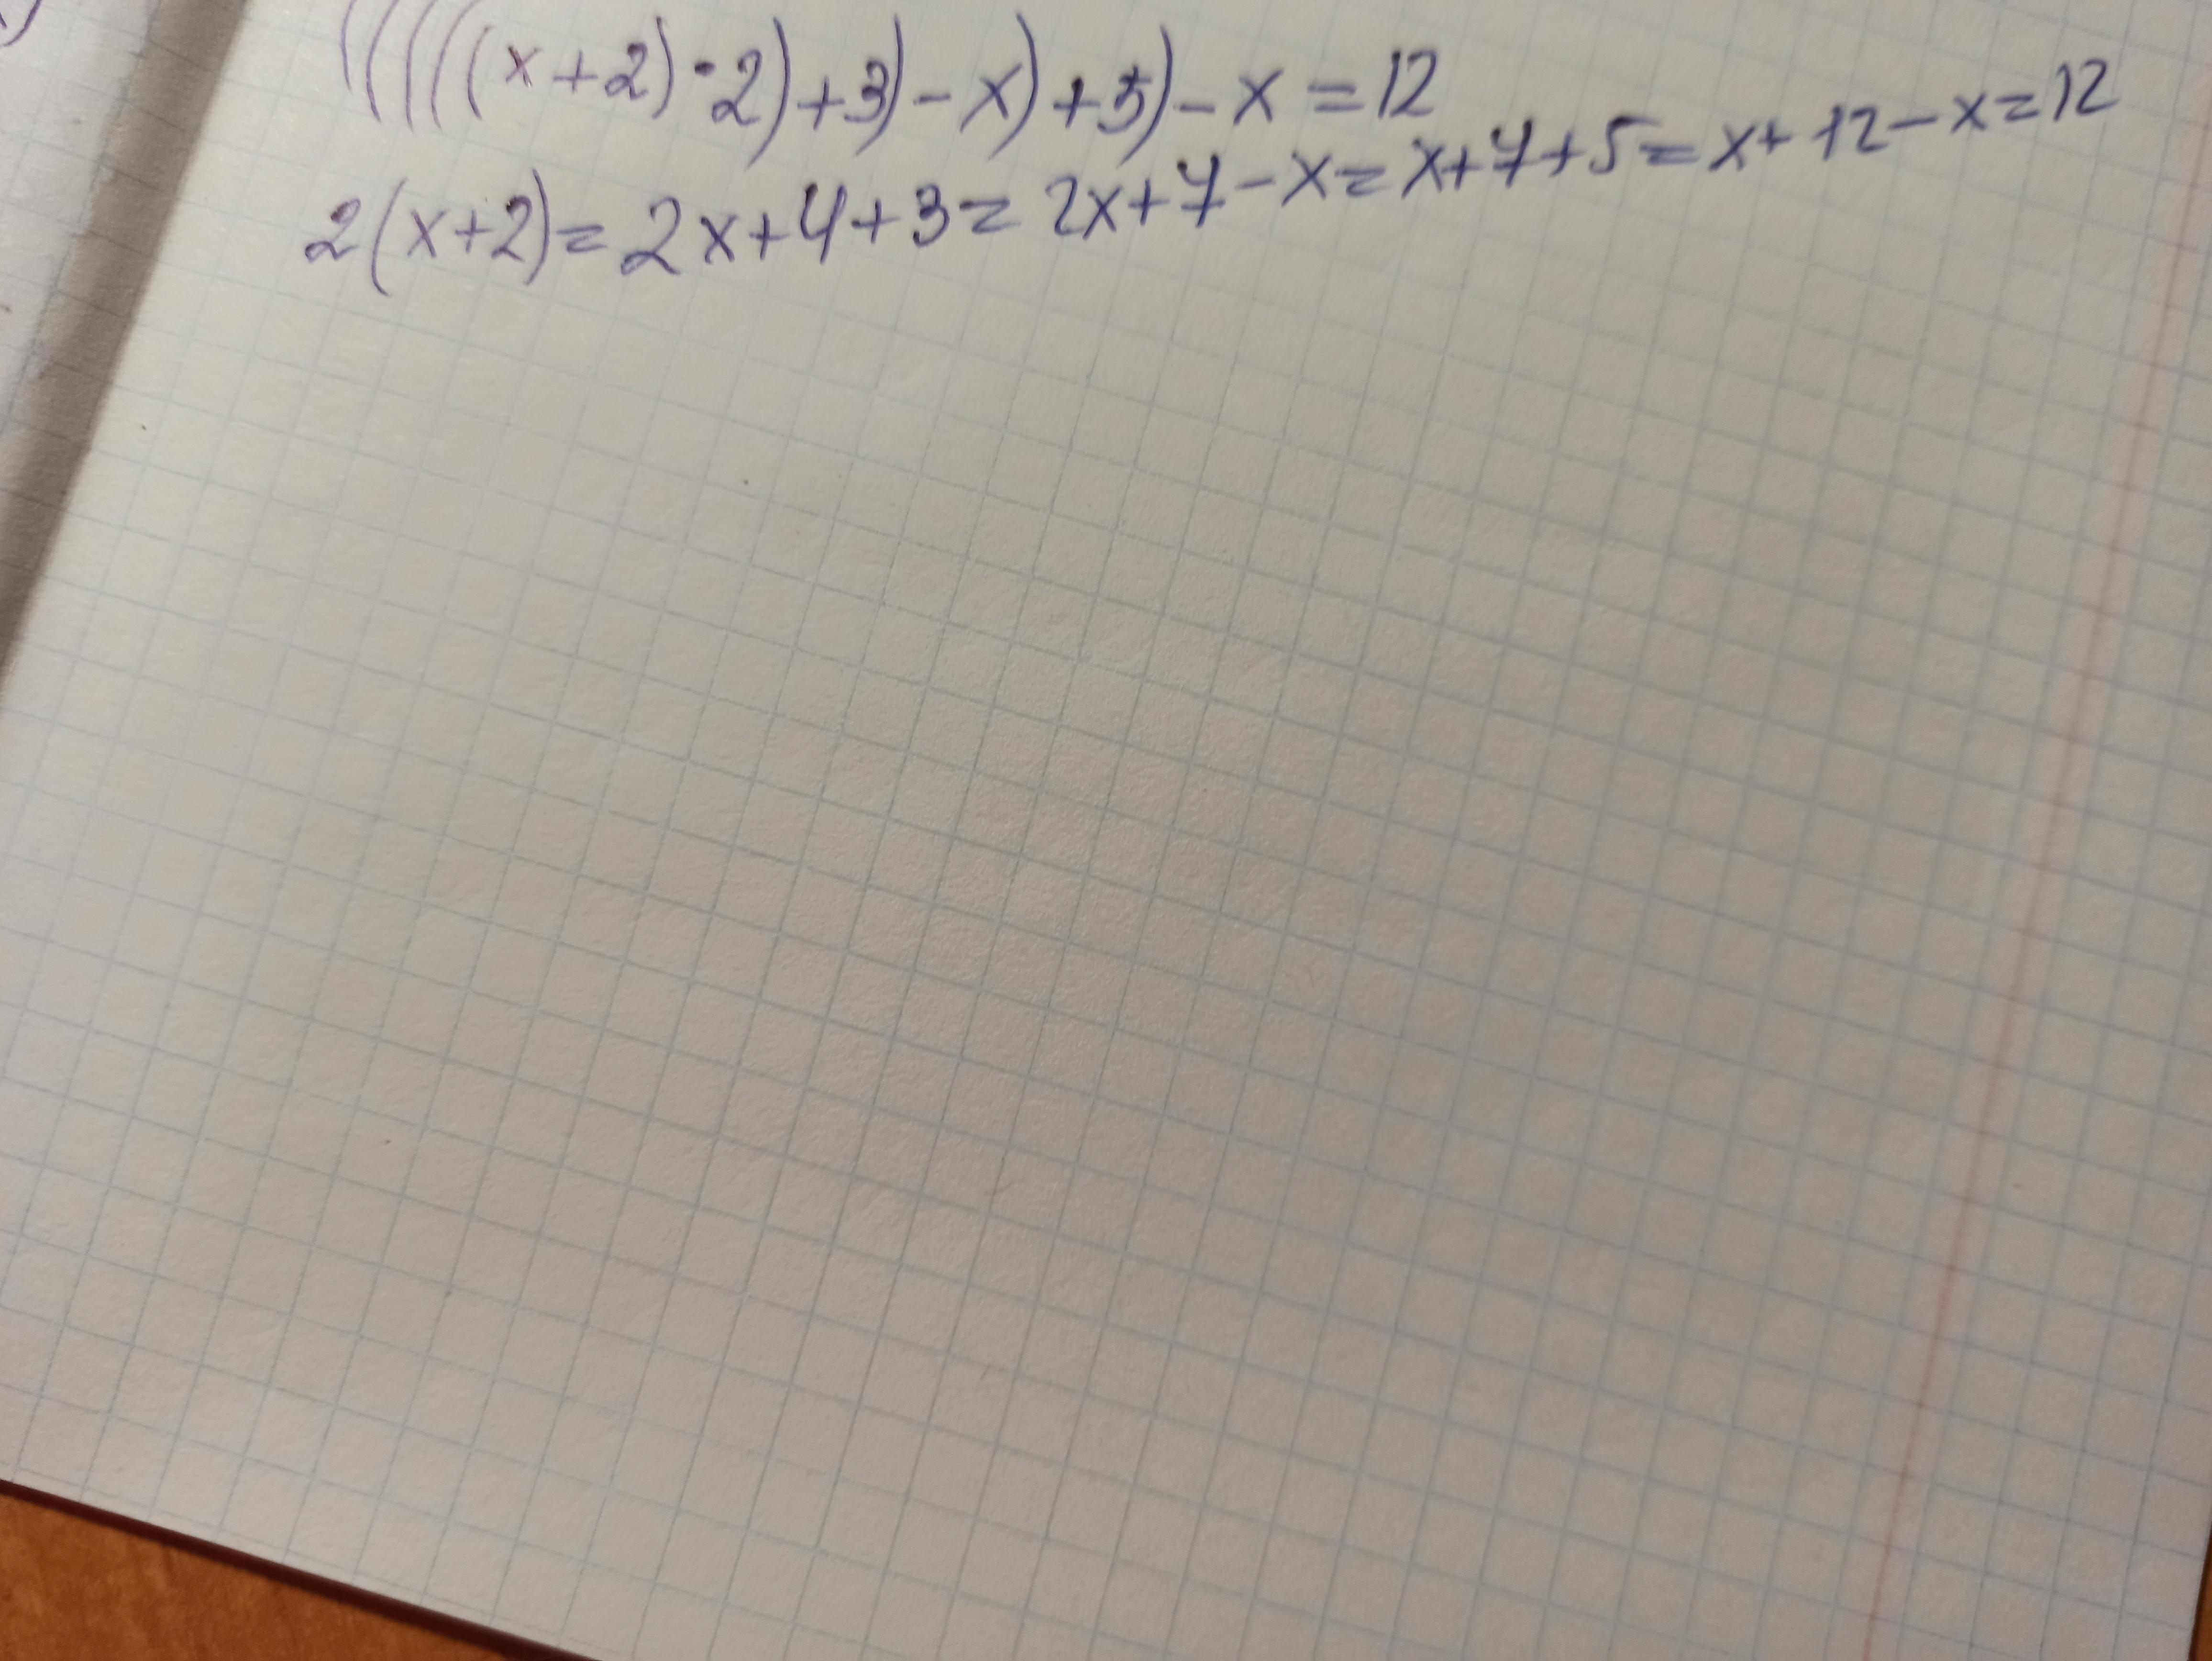 (((((x+2)·2)+3)-x)+5)-x=12
2(x+2)=2x+4+3=2x+7-x=x+7+5=x+12-x=12